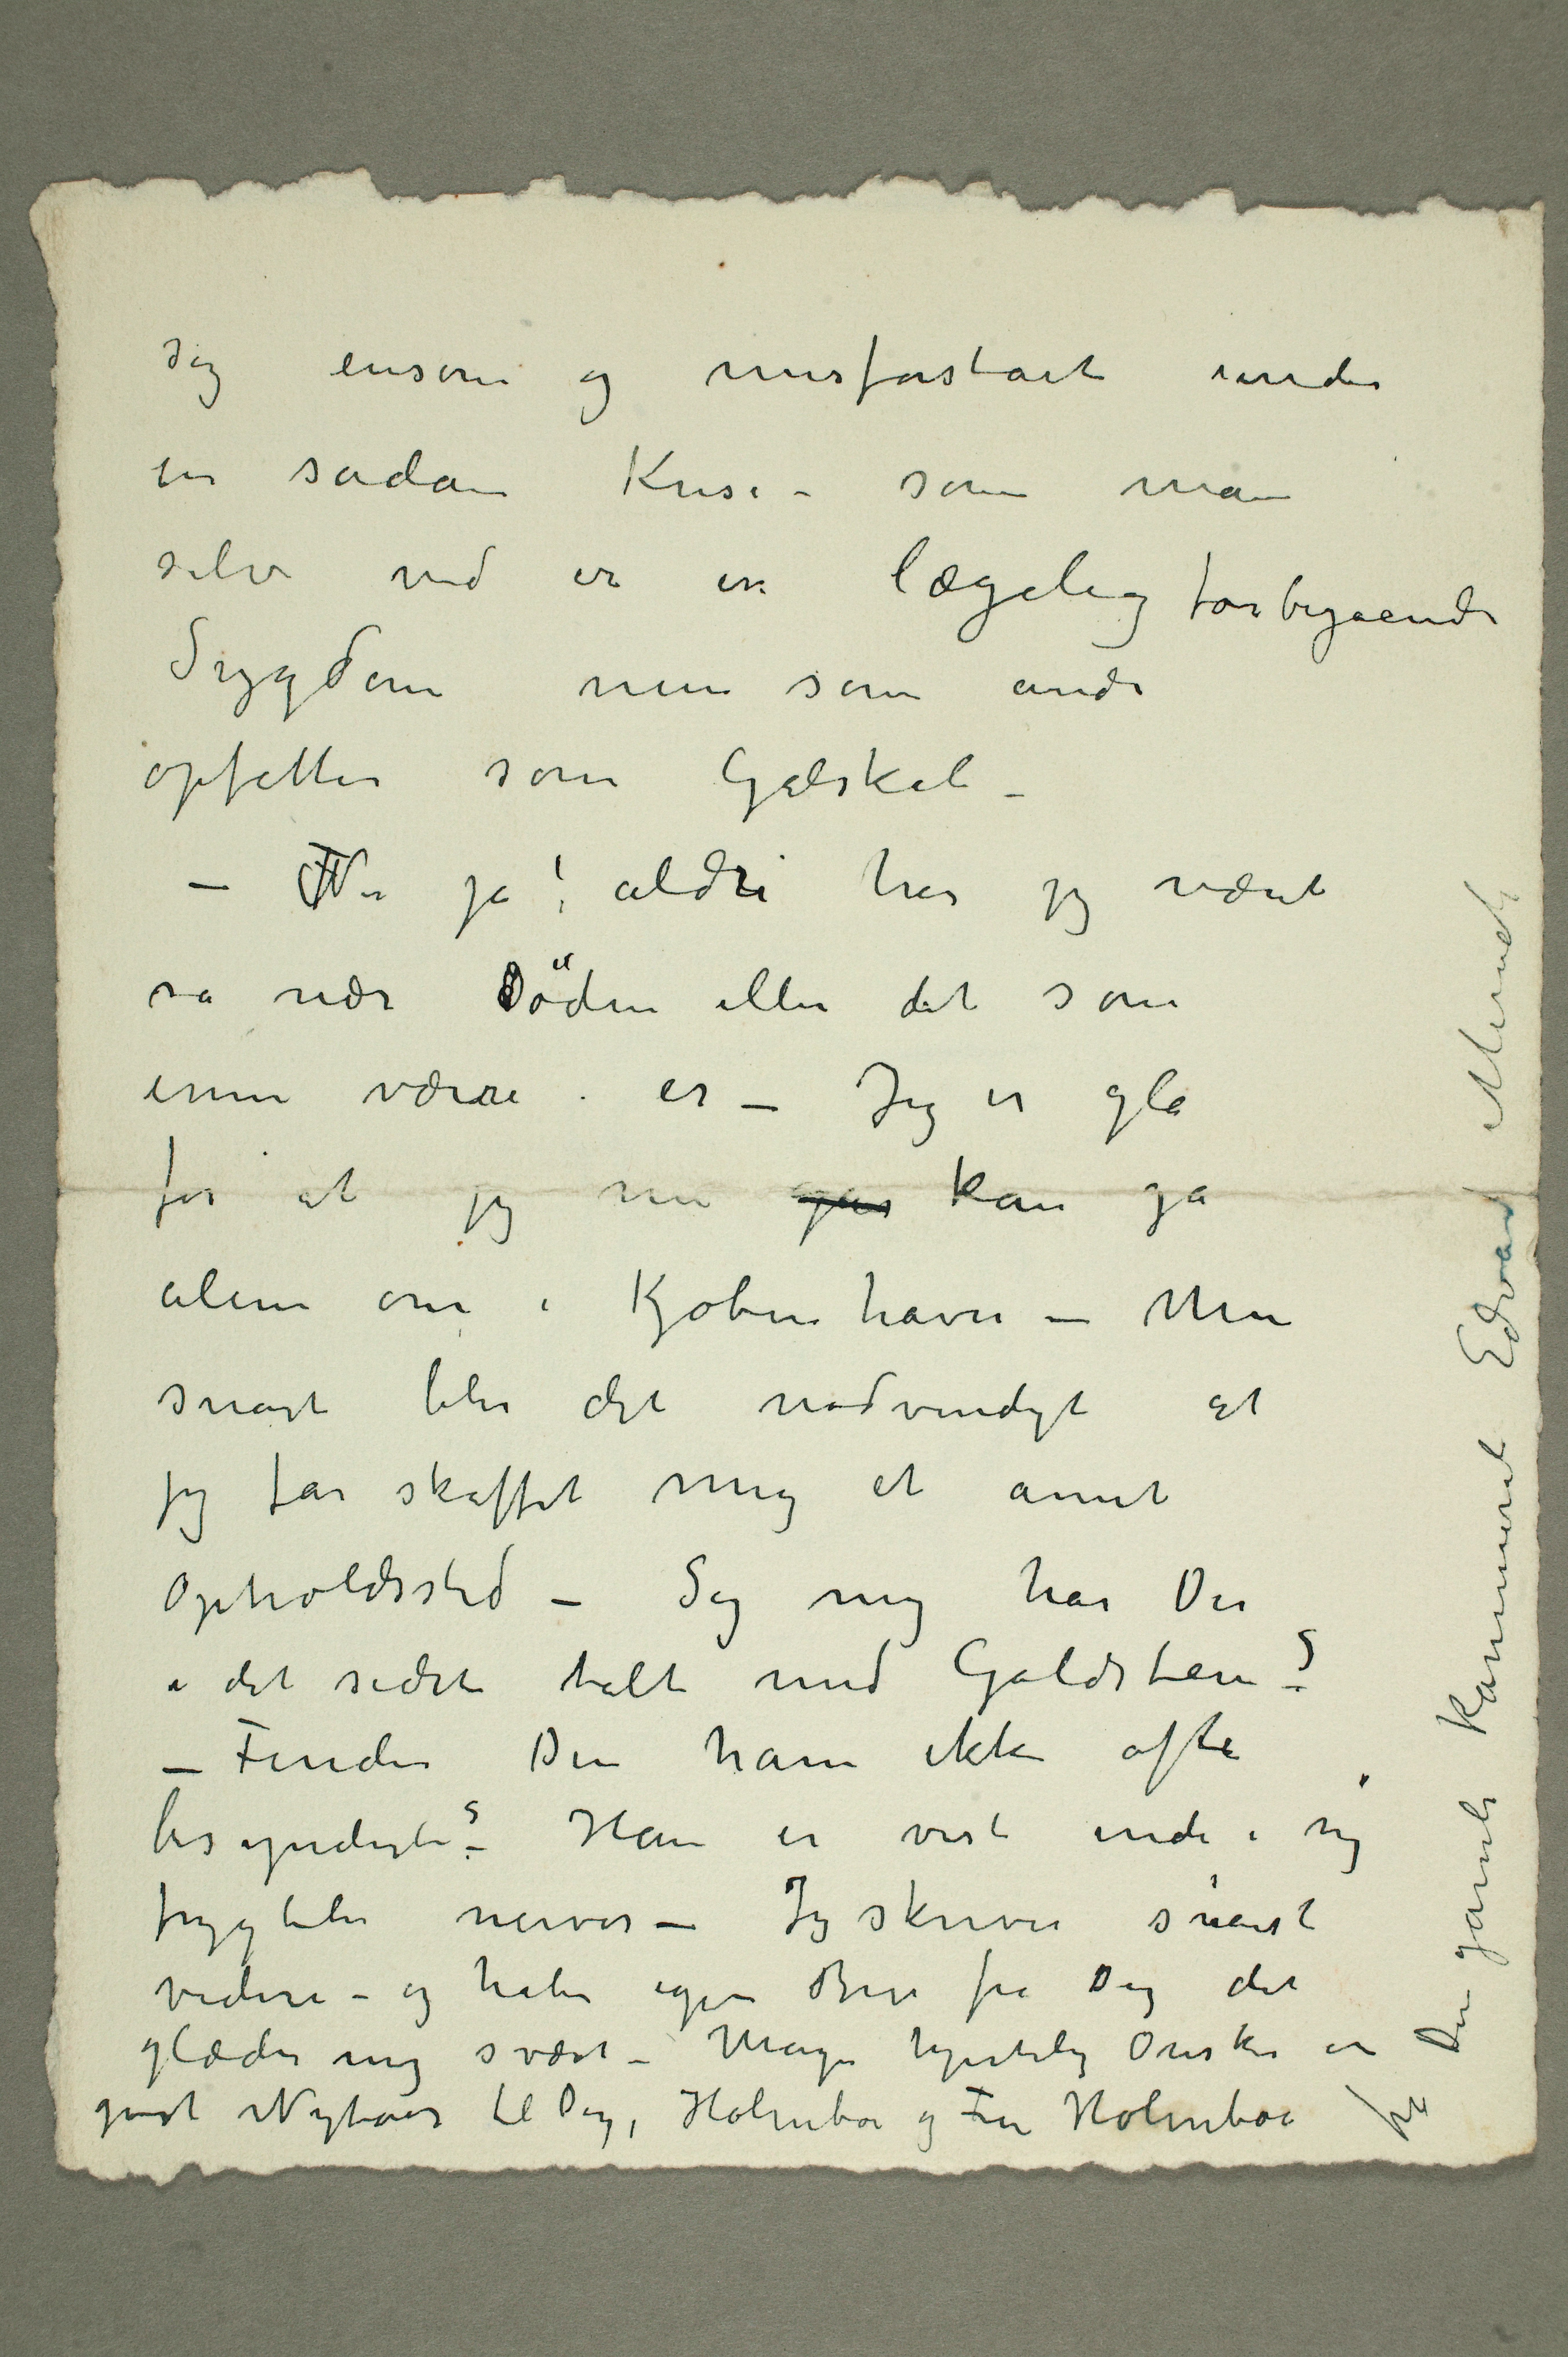 sig ensom og misforståt under
en sådan Krise – som man
selv ved er en lægelig forbigående
Sygdom men som andre
opfatter som Galskab –
– Nei ja! aldri har jeg været
så nær Døden eller det som
ennu værre er – Jeg er gla
for at jeg nu går kan gå
alene om i Kjøbenhavn – Men
snart blir det nødvendigt at
jeg får skaffet mig et annet
Opholdssted – Sig mig har Du
i det sidste talt med Goldstein?
– Finder Du ham ikke ofte
besynderlig? – Han er vist inde i sig
frygtelig nervøs – Jeg skriver snart
videre – og håber igjen Brev fra Dig det
glæder mig svært – Mange hjertelig Ønsker om
godt Nytaar til Dig, Holmboe og Fru Holmboe
fra Din gamle Kammerat Edvard Munch